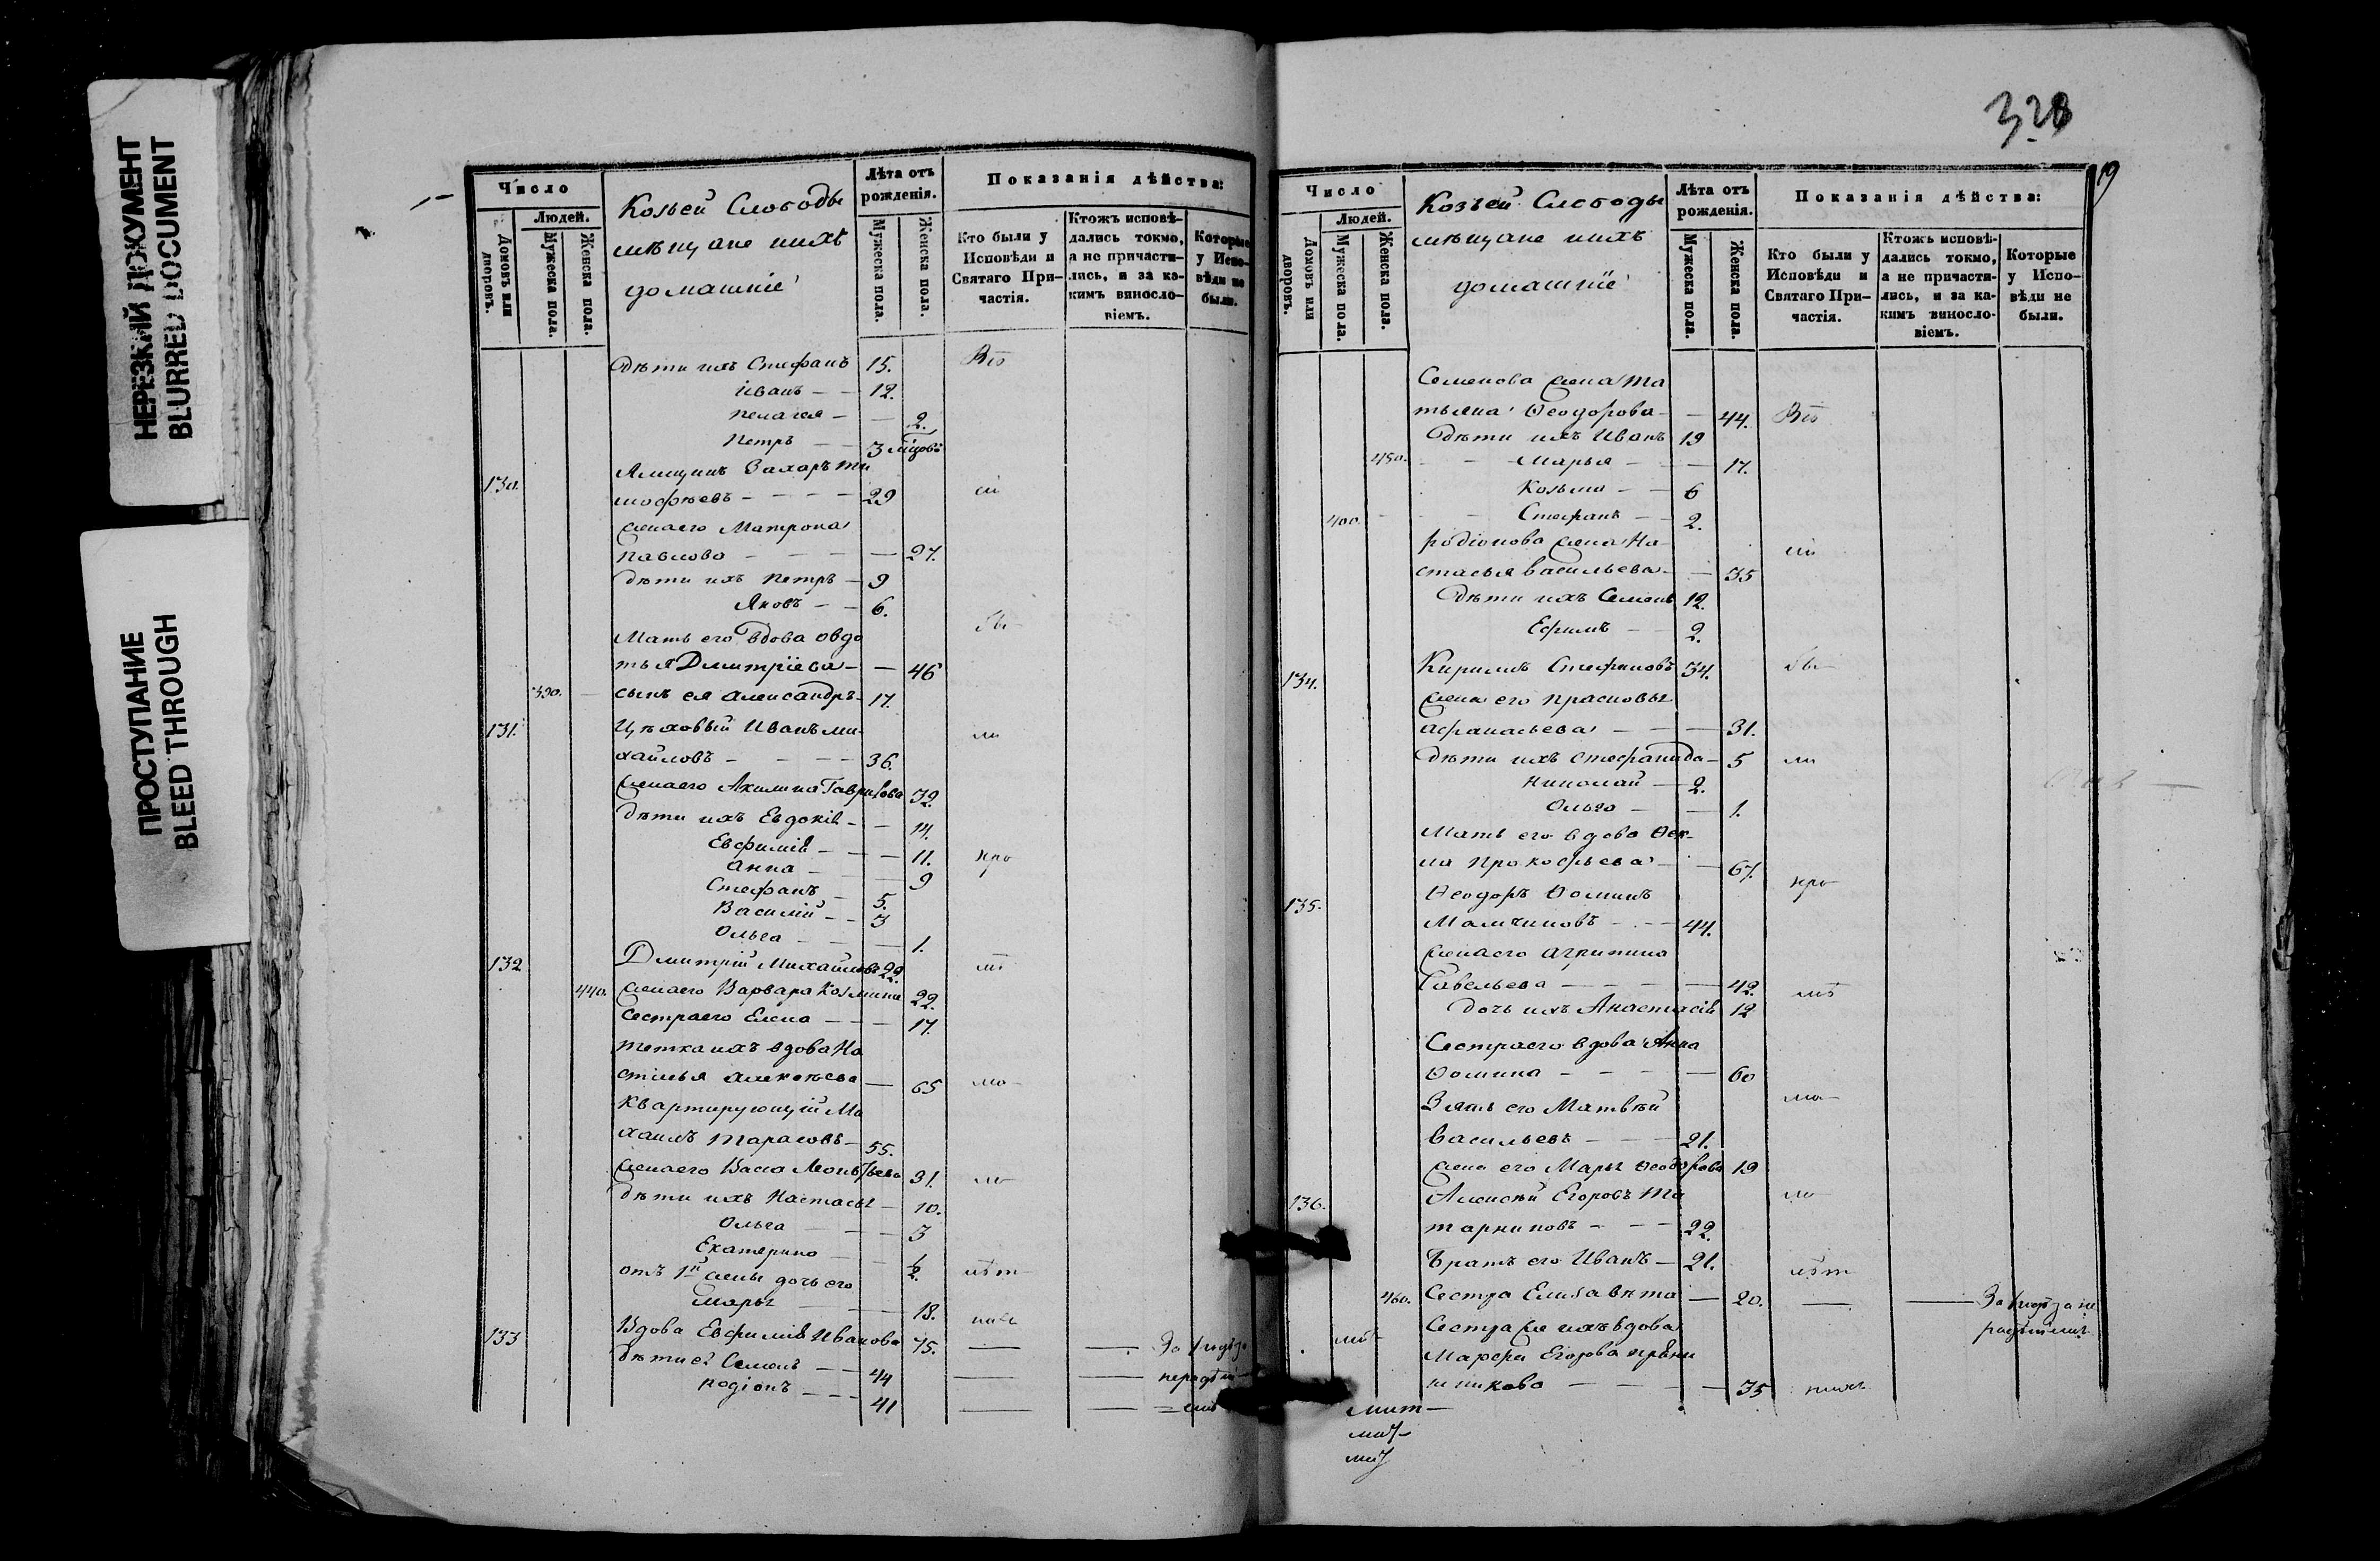 НЕРЕЗКИЙ ДОКУМЕНТ
BLURRED DOCUMENT
ПРОСТУПАНИЕ
BLEED THROUGH
Число
Людей.
Домовъ или дворовъ.
Мужеска пола.
Женска пола.
Козьей Слободы
мѣщане и ихъ
домашніе
Лѣта отъ рожденія.
Мужеска пола.
Женска пола.
Показанія дѣйства:
Кто были у Исповѣди и Святаго Причастія.
Ктожъ исповѣдались токмо, а не причастились, и за какимъ винословіемъ.
Которые у Исповѣди не были.
дѣти ихъ Стефанъ 15.
Иванъ — 12.
Пелагея — 2.
Петръ — 3 мѣсцовъ
130. Ямщикъ Захаръ Ти
мофѣевъ — 29
жена его Матрона
Павлова — 27.
дѣти ихъ Петръ — 9
Яковъ — 6.
Мать его вдова Овдо
тья Дмитріева — 46
390. сынъ ея Александръ 17.
131. Цѣховый Иванъ Ми
хайловъ — 36.
жена его Акилина Гаврилова 32.
дѣти ихъ Евдокія — 14.
Евфимія — 11.
Анна — 9
Стефанъ — 5.
Василій — 3
Ольга — 1.
132 Дмитрій Михайловъ 22.
440. жена его Варвара Козмина 22.
Сестра его Елена — 17.
тетка ихъ вдова На
стасья Алексѣева — 65
Квартирующій Ми
хаилъ Тарасовъ — 55.
жена его Васса Леонтьева 31.
дѣти ихъ Настасья — 10.
Ольга — 3
Екатерина — ½.
отъ 1й жены дочь его
Марья — 18.
133 Вдова Евфимія Иванова 75.
дѣти её Семенъ — 44
Родіонъ — 41
328
19
Число
Людей.
Домовъ или дворовъ.
Мужеска пола.
Женска пола.
Козьей Слободы
мѣщане и ихъ
домашніе
Лѣта отъ рожденія.
Мужеска пола.
Женска пола.
Показанія дѣйства:
Кто были у Исповѣди и Святаго Причастія.
Ктожъ исповѣдались токмо, а не причастились, и за какимъ винословіемъ.
Которые у Исповѣди не были.
Семенова жена Та
тьяна Ѳеодорова — 44.
дѣти ихъ Иванъ 19
450. Марья — 17.
Козьма — 6
400. Стефанъ — 2.
Родіонова жена На
стасья Васильева — 35
дѣти ихъ Семенъ 12.
Ефимъ — 2.
134. Кириллъ Стефановъ 34.
жена его Прасковья
Афанасьева — 31.
дѣти ихъ Стефанида — 5
Николай — 2.
Ольга — 1.
Мать его вдова Ѳек-
ла Прокофьева — 67.
135. Ѳеодоръ Ѳоминъ
44.
жена его Агрипина
Савельева — 42.
дочь ихъ Анастасія 12
Сестра его вдова Анна
Ѳомина — 60
Зять его Матвѣй
Васильевъ — 21.
жена его Марья Ѳеодорова 19
136. Алексѣй Егоровъ Та
таркиновъ — 22.
Братъ его Иванъ — 21.
460. Сестра Елизавета — 20.
Сестра же ихъ вдова
Марфа Егорова
35